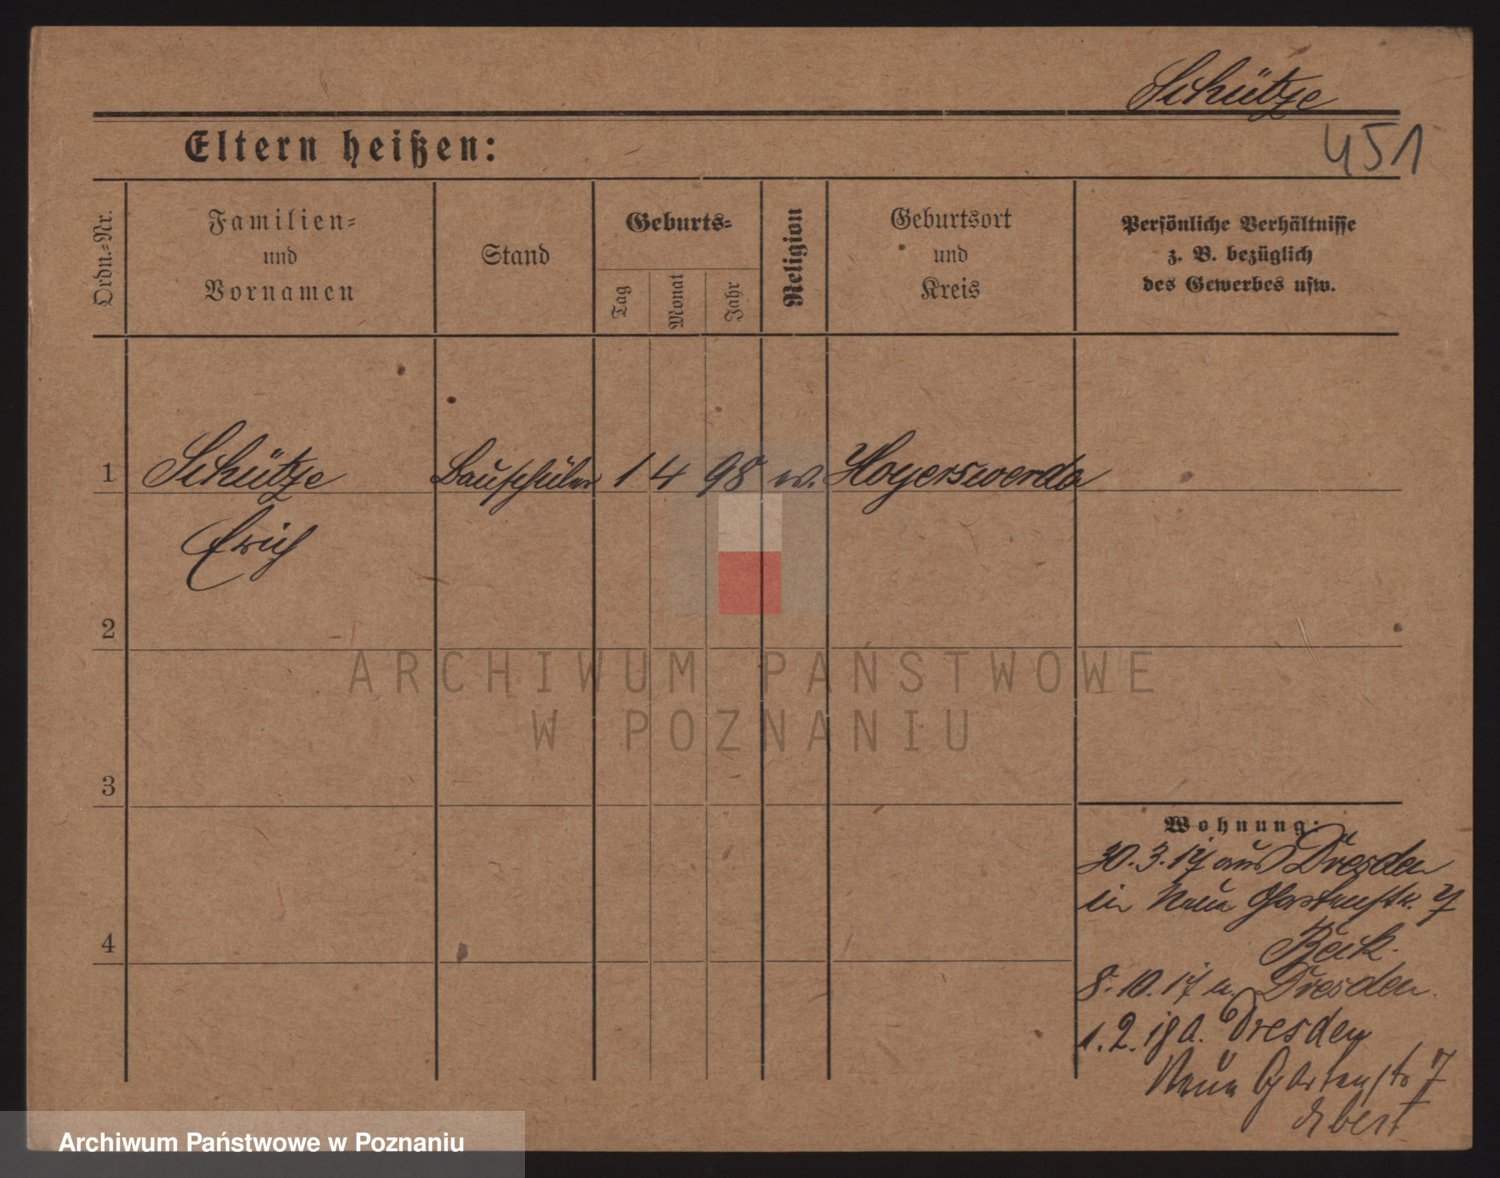 Schütze
451
Eltern heißen:
Ordn.-Nr.
Familien-
und
Vornamen
Stand
Geburts-
Tag
Monat
Jahr
Religion
Geburtsort
und
Kreis
Persönliche Verhältnisse
z. B. bezüglich
des Gewerbes usw.
1
Schütze
Bauschüler
1
4
98
ev.
Hoyerswerda
Erich
2
ARCHIWUM PAŃSTWOWE
W POZNANIU
3
Wohnung:
30.3.17 aus Dresden
in Neue Gartenstr. 7
4
8.10.17 n. Dresden.
1.2.18 a. Dresden
Neue Gartenstr 7
Ebert
Archiwum Państwowe w Poznaniu